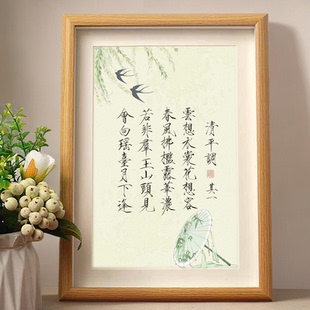 清平調 其一
雲想衣裳花想容
春風拂檻露華濃
若非群玉山頭見
會向瑤臺月下逢